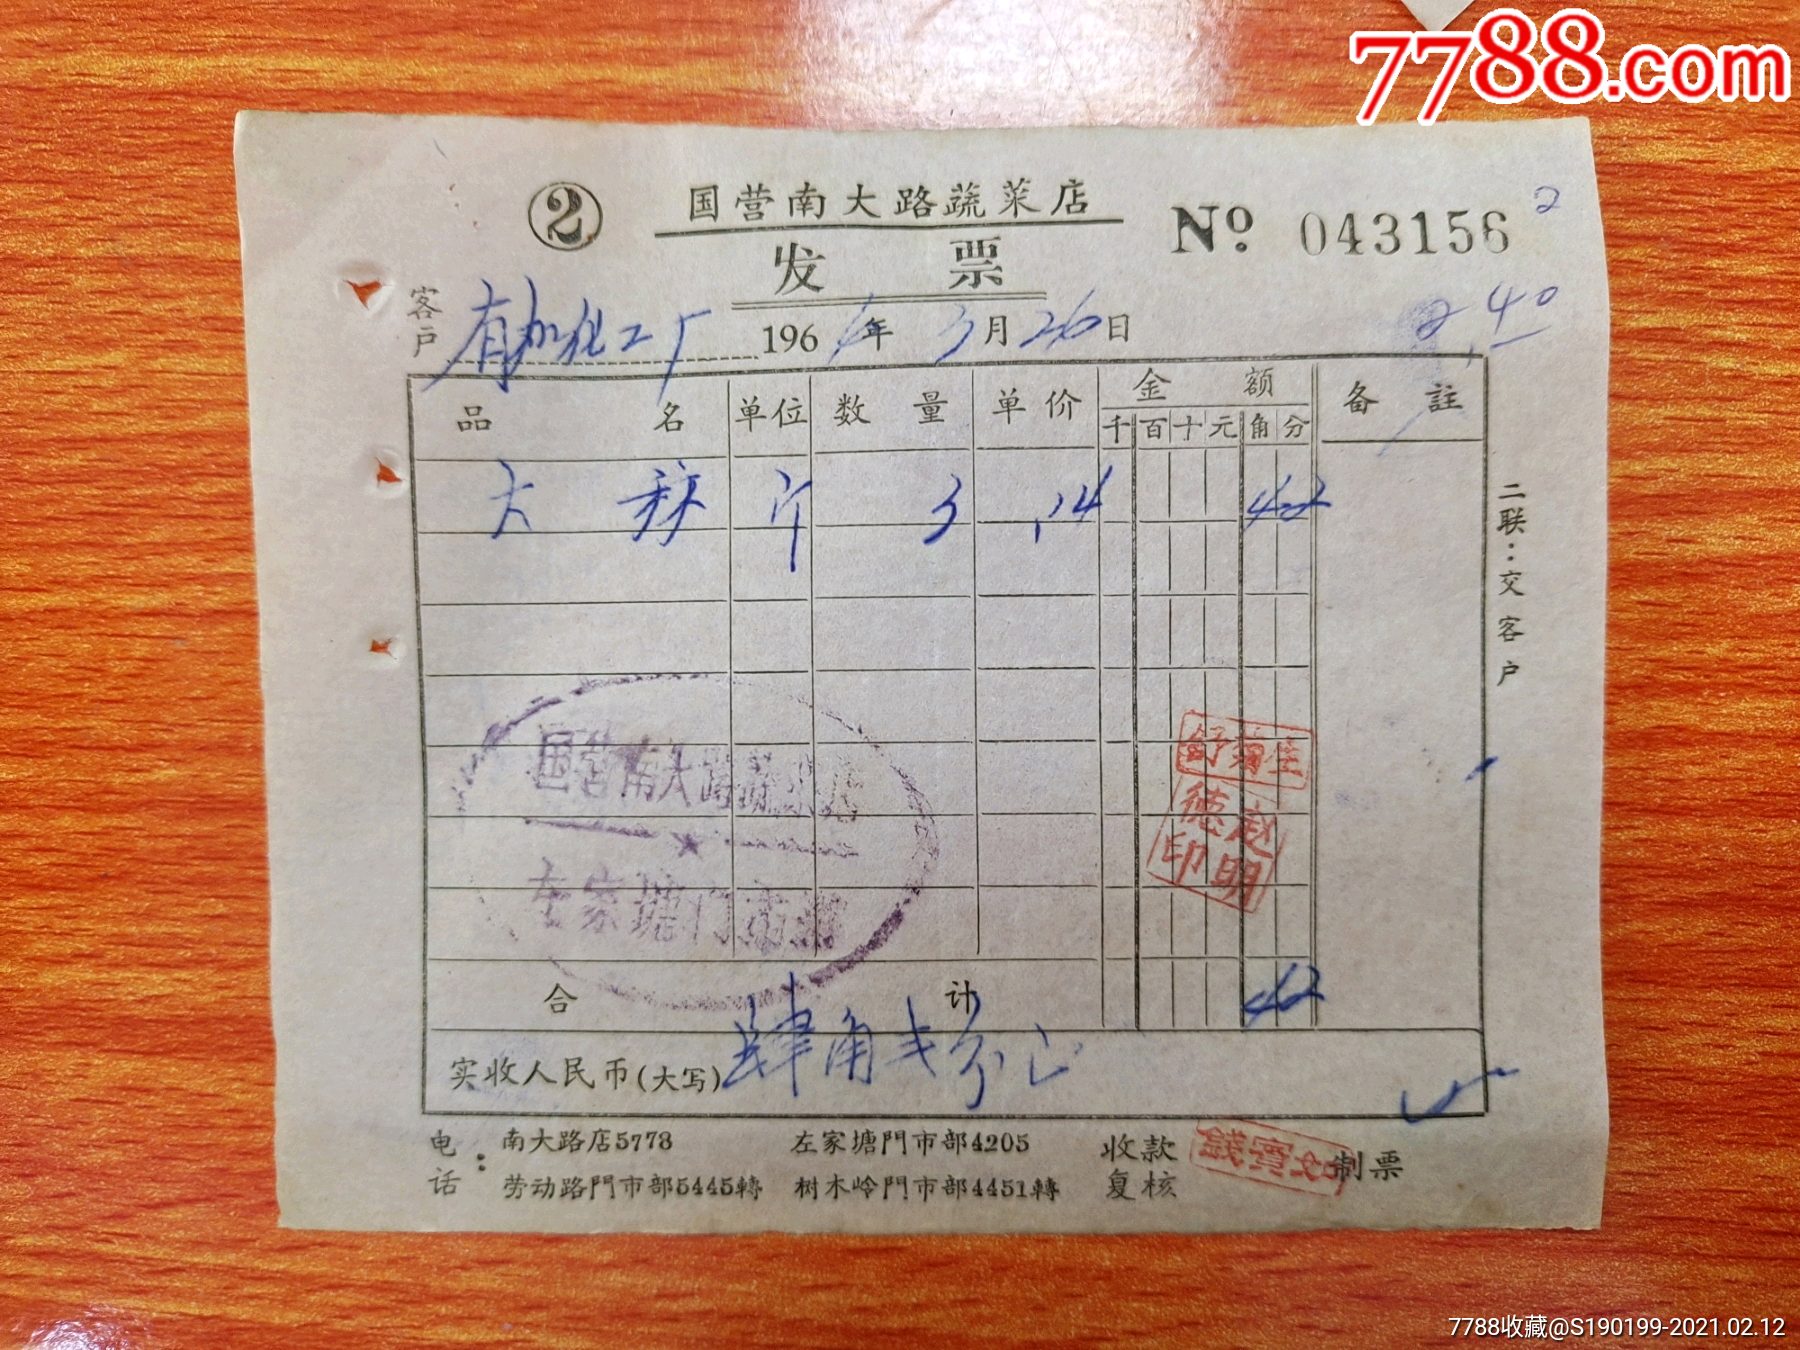 7788.com
② 国营南大路蔬菜店 №043156 2
发票
客户 有机化工厂 196 年 3月26日 2.40
品名 单位 数量 单价 金额 备註
千 百 十 元 角 分
大 斤 3 .14 42
二联：交客户
国营南大路蔬菜店
左家塘门市部
赵德明印
合计 42
实收人民币(大写) 肆角 分正
电话： 南大路店5778 左家塘門市部4205 收款 制票
劳动路門市部5445轉 树木岭門市部4451轉 复核
7788收藏@S190199-2021.02.12